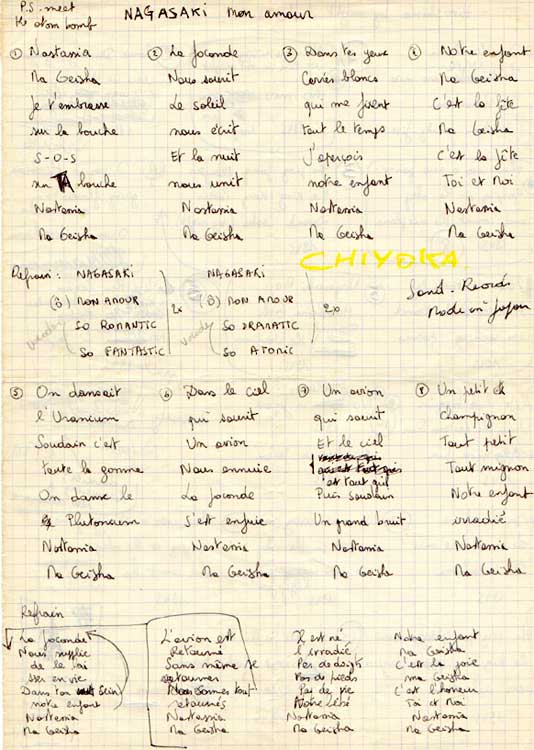 P.S. meet
the atom bomb
NAGASAKI mon amour
① Nastassia
Ma Geisha
je t'embrasse
sur la bouche
S-O-S
sur TA bouche
Nastassia
Ma Geisha
② La Joconde
Nous sourit
Le soleil
nous écrit
Et la nuit
nous unit
Nastassia
Ma Geisha
③ Dans tes yeux
Cernés blancs
qui me fixent
tout le temps
J'aperçois
notre enfant
Nastassia
Ma Geisha
④ Notre enfant
Ma Geisha
C'est la fête
Ma Geisha
C'est la fête
Toi et Moi
Nastassia
Ma Geisha
CHIYOKA
Refrain : NAGASAKI
(3) MON AMOUR
SO ROMANTIC
SO FANTASTIC
2x
Vocoder
NAGASAKI
(3) MON AMOUR
SO DRAMATIC
SO ATOMIC
2x
Vocoder
Records
Made in Japan
⑤ On dansait
l'Uranium
Soudain c'est
toute la gomme
On danse le
Plutonium
Nastassia
Ma Geisha
⑥ Dans le ciel
qui sourit
Un avion
Nous ennuie
La Joconde
S'est enfuie
Nastassia
Ma Geisha
⑦ Un avion
qui sourit
Et le ciel
c'est tout gris
Puis soudain
Un grand bruit
Nastassia
Ma Geisha
⑧ Un petit
champignon
Tout petit
Tout mignon
Notre enfant
irradié
Nastassia
Ma Geisha
Refrain
La Joconde
Nous supplie
de le lai
sser en vie
Dans ton sein
notre enfant
Nastassia
Ma Geisha
L'avion est
Retourné
Sans même se
retourner
Nous sommes tout
retournés
Nastassia
Ma Geisha
Il est né
l'irradié
Pas de doigts
Pas de pieds
Pas de
Notre bébé
Nastassia
Ma Geisha
Notre enfant
Ma Geisha
C'est la joie
ma Geisha
C'est l'honneur
Toi et Moi
Nastassia
Ma Geisha